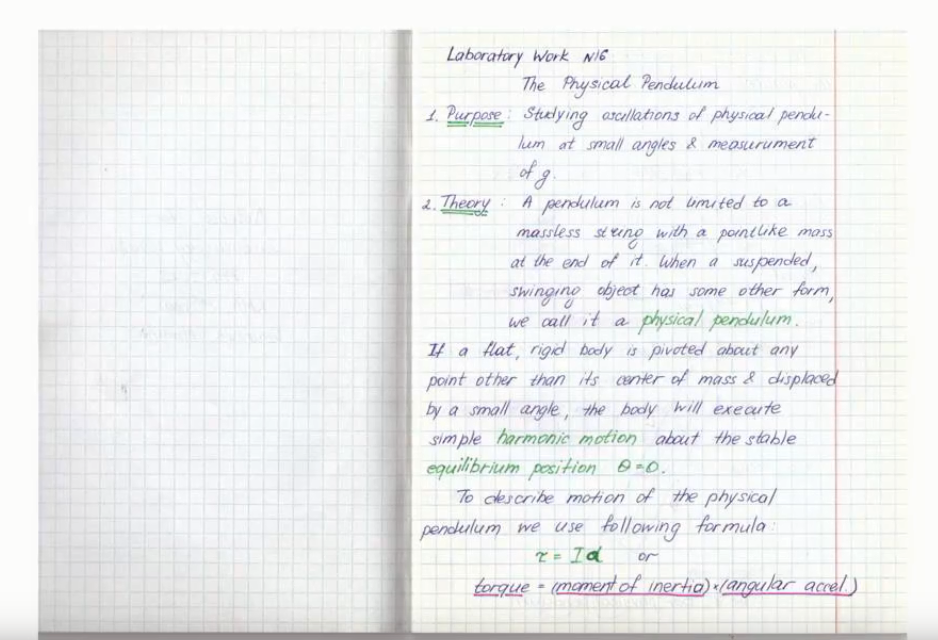 Laboratory Work N16
The Physical Pendulum
1. Purpose: Studying oscillations of physical pendu-
lum at small angles & measurument
of g.
2. Theory: A pendulum is not limited to a
massless string with a pointlike mass
at the end of it. When a suspended,
swinging object has some other form,
we call it a physical pendulum.
If a flat, rigid body is pivoted about any
point other than its center of mass & displaced
by a small angle, the body will execute
simple harmonic motion about the stable
equilibrium position θ=0.
To describe motion of the physical
pendulum we use following formula:
τ = Iα or
torque = (moment of inertia)×(angular accel.)